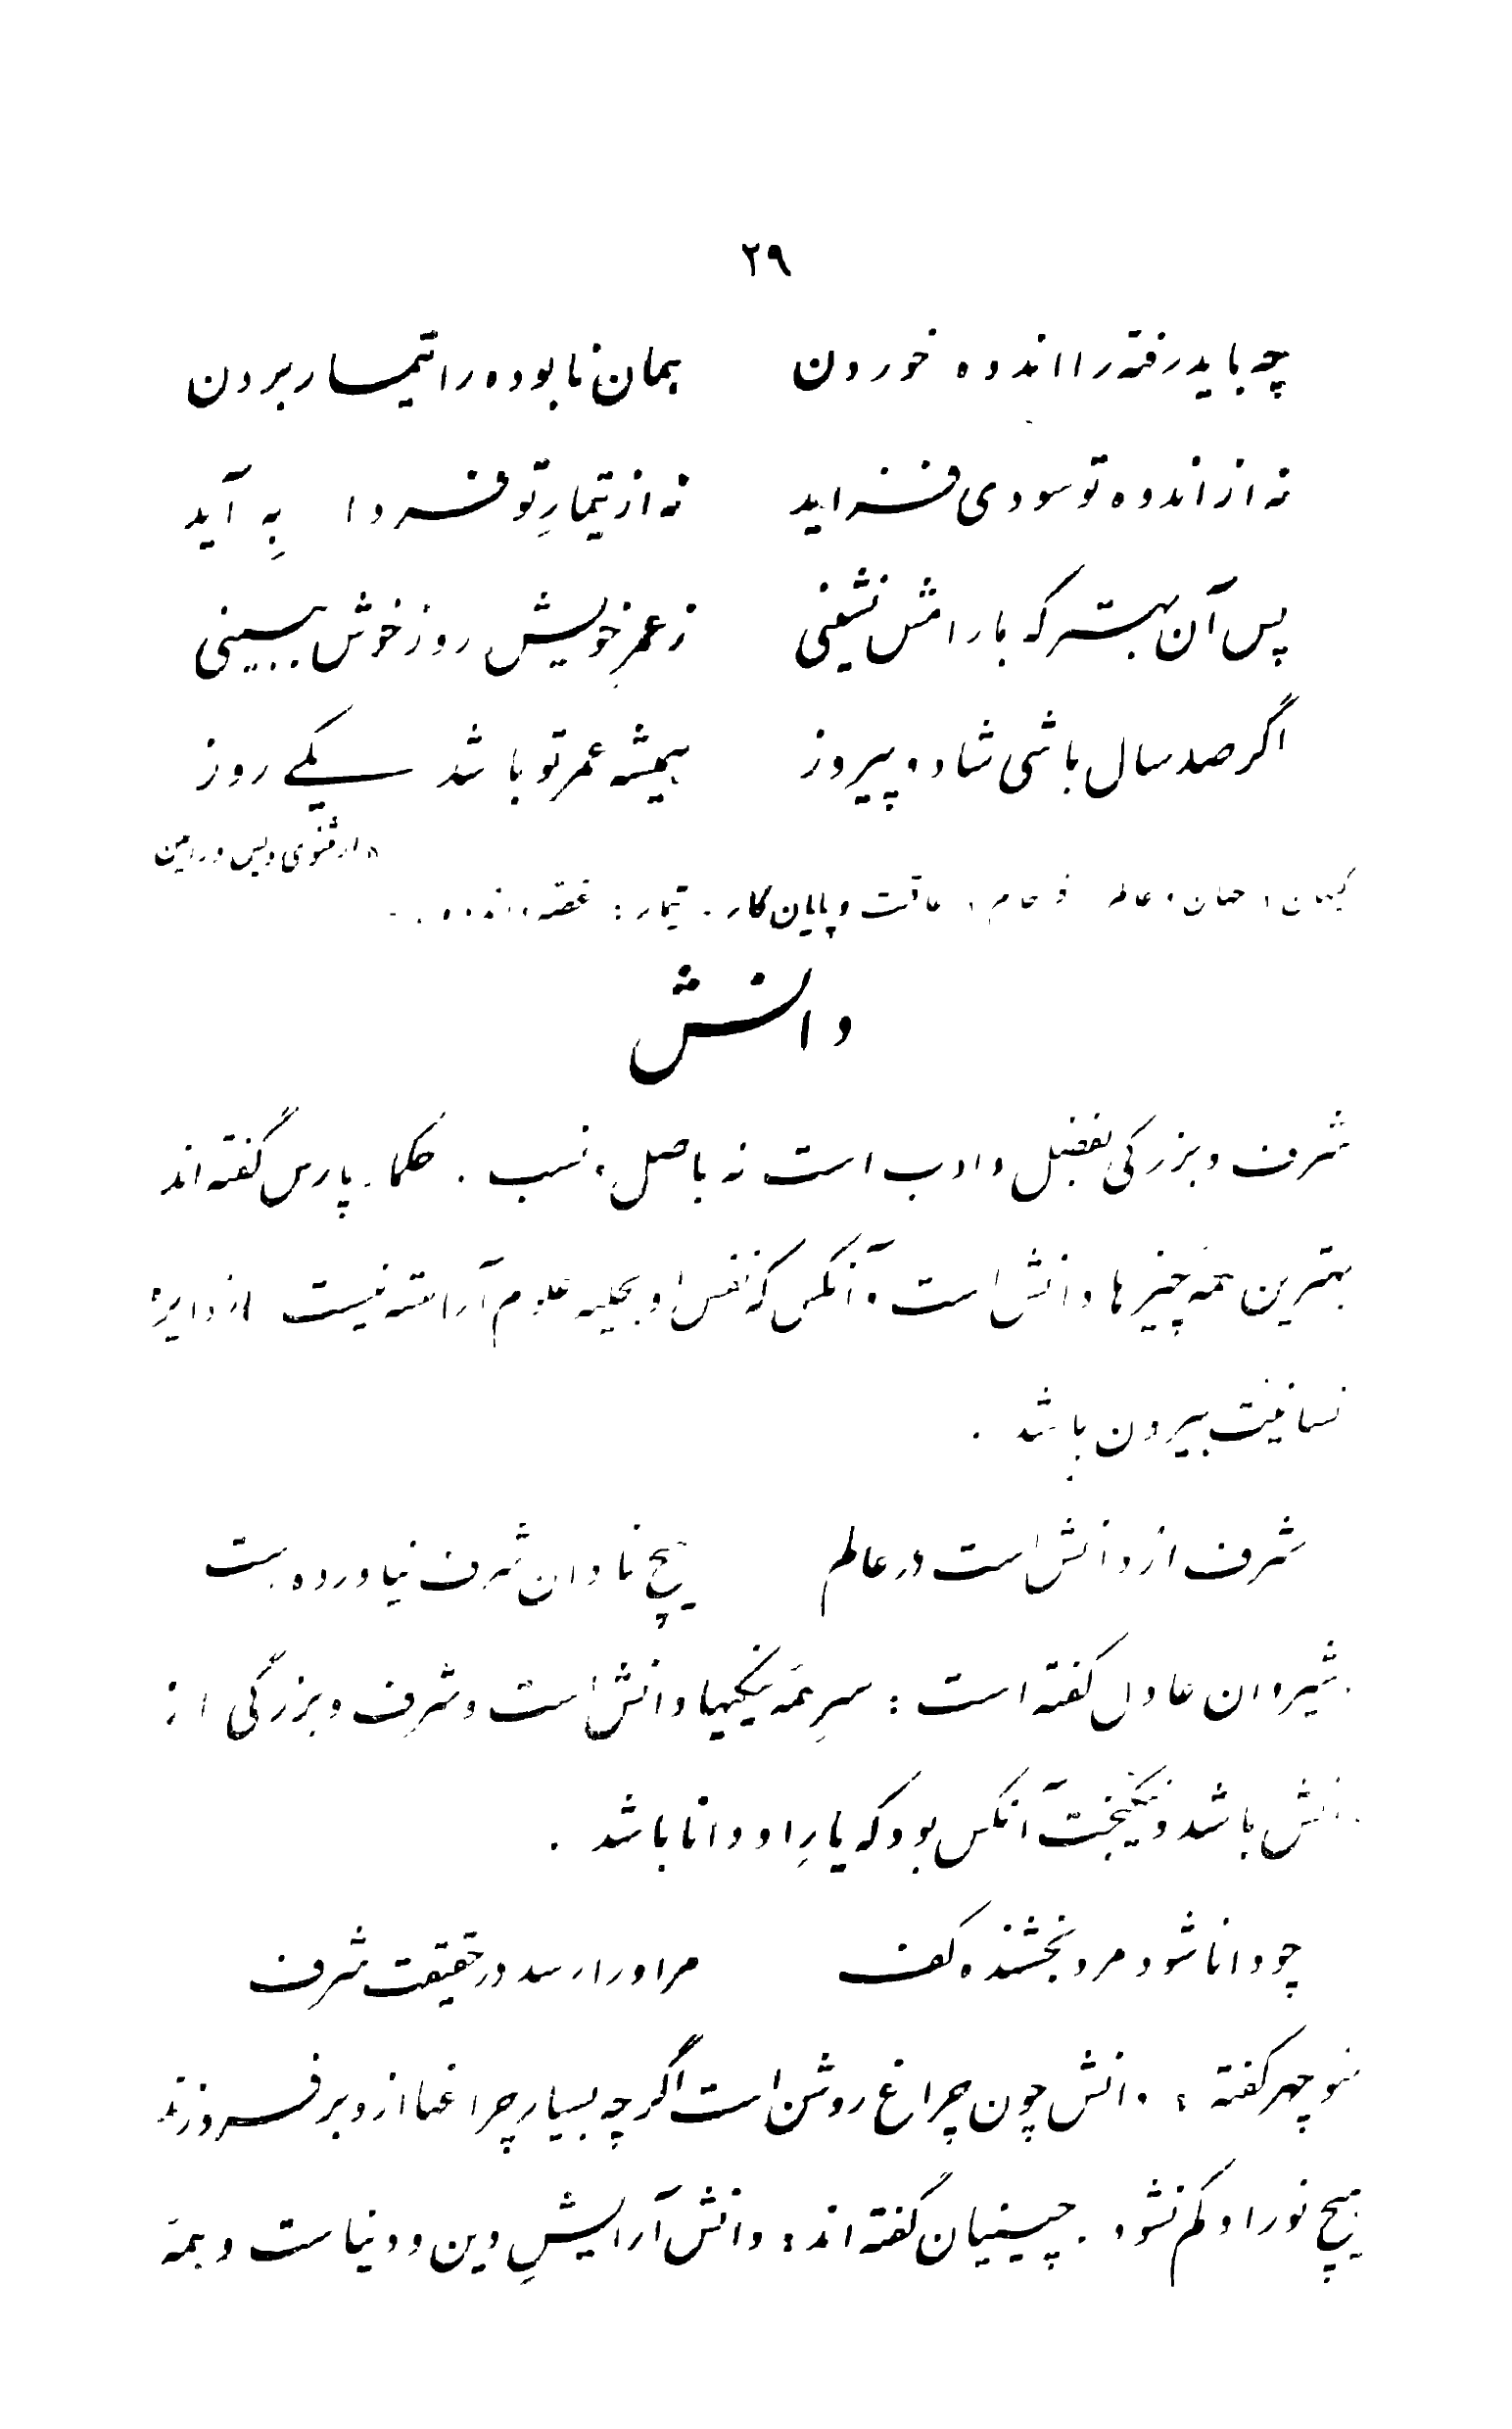 ۲۹
چه باید رفته را اندوه خوردن همان نابوده را تیمار بردن
نه از اندوه تو سودی فزاید نه از تیمارِ تو فردا بِه آید
پس آن بهتر که با رامش نشینی ز عمرِ خویش روز خوش ببینی
اگر صد سال باشی شاد و پیروز همیشه عمر تو باشد یکی روز
از مثنوی ویس و رامین
کیهان: جهان و عالم فرجام: عاقبت و پایان کار. تیمار: غصه و اندوه.
دانش
شرف و بزرگی بفضل و ادب است نه باصل و نسب. حکماء پارس گفته‌اند
بهترین همه چیزها دانش است و آنکس که نفس او بحلیه علوم آراسته نیست از دایره
نسانیت بیرون باشد.
شرف از دانش است در عالم هیچ نادان شرف نیاورده بست
شیروان عادل گفته است: سرِ همه نیکیها دانش است و شرف و بزرگی از
نش باشد و نیکبخت آنکس بود که یارِ او دانا باشد.
چو دانا شود مرد بخشنده کف مر او را رسد در حقیقت شرف
نوچهر گفته: دانش چون چراغ روشن است اگر چه بسیار چراغها از و برفروزند
هیچ نور او کم نشود. چینیان گفته‌اند: دانش آرایشِ دین و دنیاست و همه